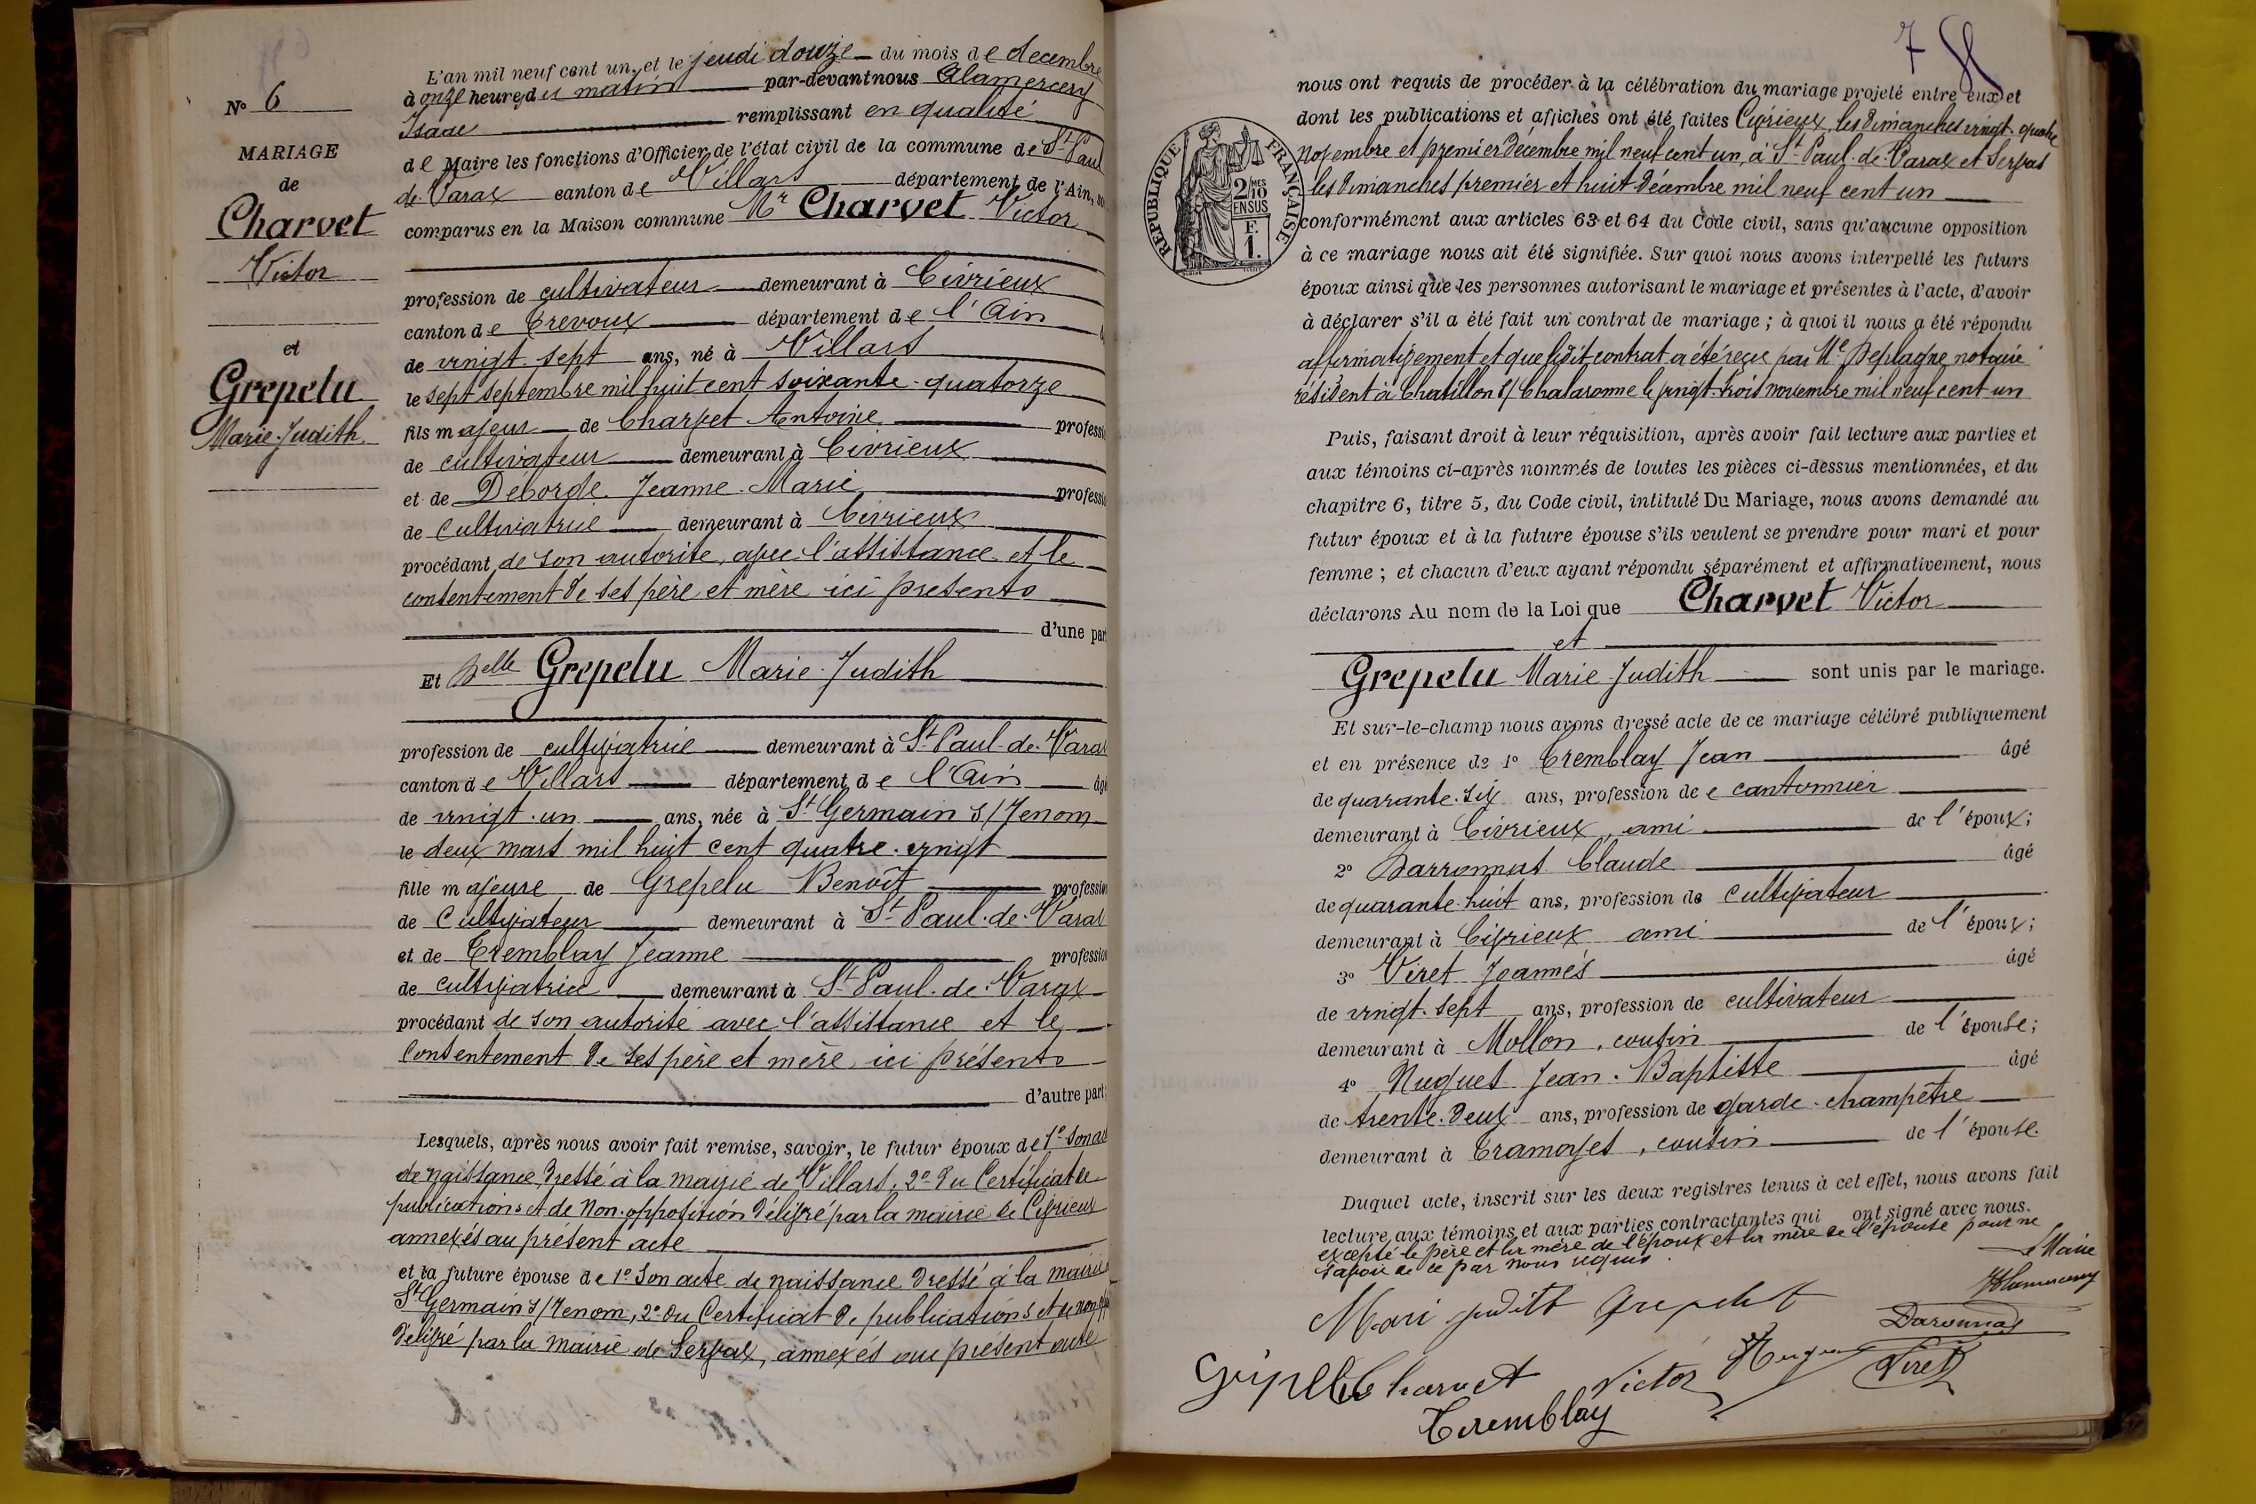 N° 6
MARIAGE
de
Charvet
Victor
et
Grepelu
Marie-Judith
L'an mil neuf cent un, et le jeudi douze du mois de decembre
à onze heures du matin par-devant nous Alamercery
Isaac remplissant en qualité
de Maire les fonctions d'Officier de l'état civil de la commune de St Paul
de Varax canton de Villars département de l'Ain,
comparus en la Maison commune Mr Charvet Victor
profession de cultivateur demeurant à Civrieux
canton de Trevoux département de l'Ain
de vingt-sept ans, né à Villars
le sept septembre mil huit cent soixante-quatorze
fils majeur de Charvet Antoine professi
de cultivateur demeurant à Civrieux
et de Deborde Jeanne-Marie professi
de cultivatrice demeurant à Civrieux
procédant de son autorité, avec l'assistance et le
consentement de ses père et mère ici présents
d'une par
Et Delle Grepelu Marie-Judith
profession de cultivatrice demeurant à St Paul-de-Varax
canton de Villars département de l'Ain âgé
de vingt-un ans, née à St Germain s/ Renom
le deux mars mil huit cent quatre-vingt
fille majeure de Grepelu Benoît profession
de cultivateur demeurant à St Paul-de-Varax
et de Tremblay Jeanne profession
de cultivatrice demeurant à St Paul-de-Varax
procédant de son autorité avec l'assistance et le
consentement de ses père et mère, ici présents
d'autre part;
Lesquels, après nous avoir fait remise, savoir, le futur époux de 1° son ac
de naissance dressé à la mairie de Villars, 2° du Certificat de
publications et de non-opposition délivré par la mairie de Civrieux
annexés au présent acte
et la future épouse de 1° son acte de naissance dressé à la mairie
St Germain s/ Renom, 2° du Certificat de publications et de non opp
délivré par la mairie de Servas, annexés au présent acte
7
nous ont requis de procéder à la célébration du mariage projeté entre eux et
dont les publications et affiches ont été faites Civrieux, les dimanches vingt-quatre
novembre et premier décembre mil neuf cent un, à St Paul-de-Varax et Servas
les dimanches premier et huit décembre mil neuf cent un
RÉPUBLIQUE FRANÇAISE
2/10 MES
EN SUS
F.
1.
conformément aux articles 63 et 64 du Code civil, sans qu'aucune opposition
à ce mariage nous ait été signifiée. Sur quoi nous avons interpellé les futurs
époux ainsi que les personnes autorisant le mariage et présentes à l'acte, d'avoir
à déclarer s'il a été fait un contrat de mariage ; à quoi il nous a été répondu
affirmativement et que ledit contrat a été reçu par Me Desplagne notaire
résident à Chatillon s/ Chalaronne le vingt-trois novembre mil neuf cent un
Puis, faisant droit à leur réquisition, après avoir fait lecture aux parties et
aux témoins ci-après nommés de toutes les pièces ci-dessus mentionnées, et du
chapitre 6, titre 5, du Code civil, intitulé Du Mariage, nous avons demandé au
futur époux et à la future épouse s'ils veulent se prendre pour mari et pour
femme ; et chacun d'eux ayant répondu séparément et affirmativement, nous
déclarons Au nom de la Loi que Charvet Victor
et
Grepelu Marie-Judith sont unis par le mariage.
Et sur-le-champ nous avons dressé acte de ce mariage célébré publiquement
et en présence de 1° Tremblay Jean âgé
de quarante-six ans, profession de cantonnier
demeurant à Civrieux, ami de l'époux;
2° Darronnat Claude âgé
de quarante-huit ans, profession de cultivateur
demeurant à Civrieux ami de l'époux;
3° Viret Joannès âgé
de vingt-sept ans, profession de cultivateur
demeurant à Mollon, cousin de l'épouse;
4° Nuguet Jean-Baptiste âgé
de trente-deux ans, profession de garde-champêtre
demeurant à Tramoyes, cousin de l'épouse.
Duquel acte, inscrit sur les deux registres tenus à cet effet, nous avons fait
lecture aux témoins et aux parties contractantes qui ont signé avec nous.
excepté le père et la mère de l'époux et la mère de l'épouse pour ne
savoir de ce par nous requis
Le Maire
Alamercery
Mari judith Grepelut
Daronnat
Gripelu Charvet Victor Nuguet Viret
Tremblay